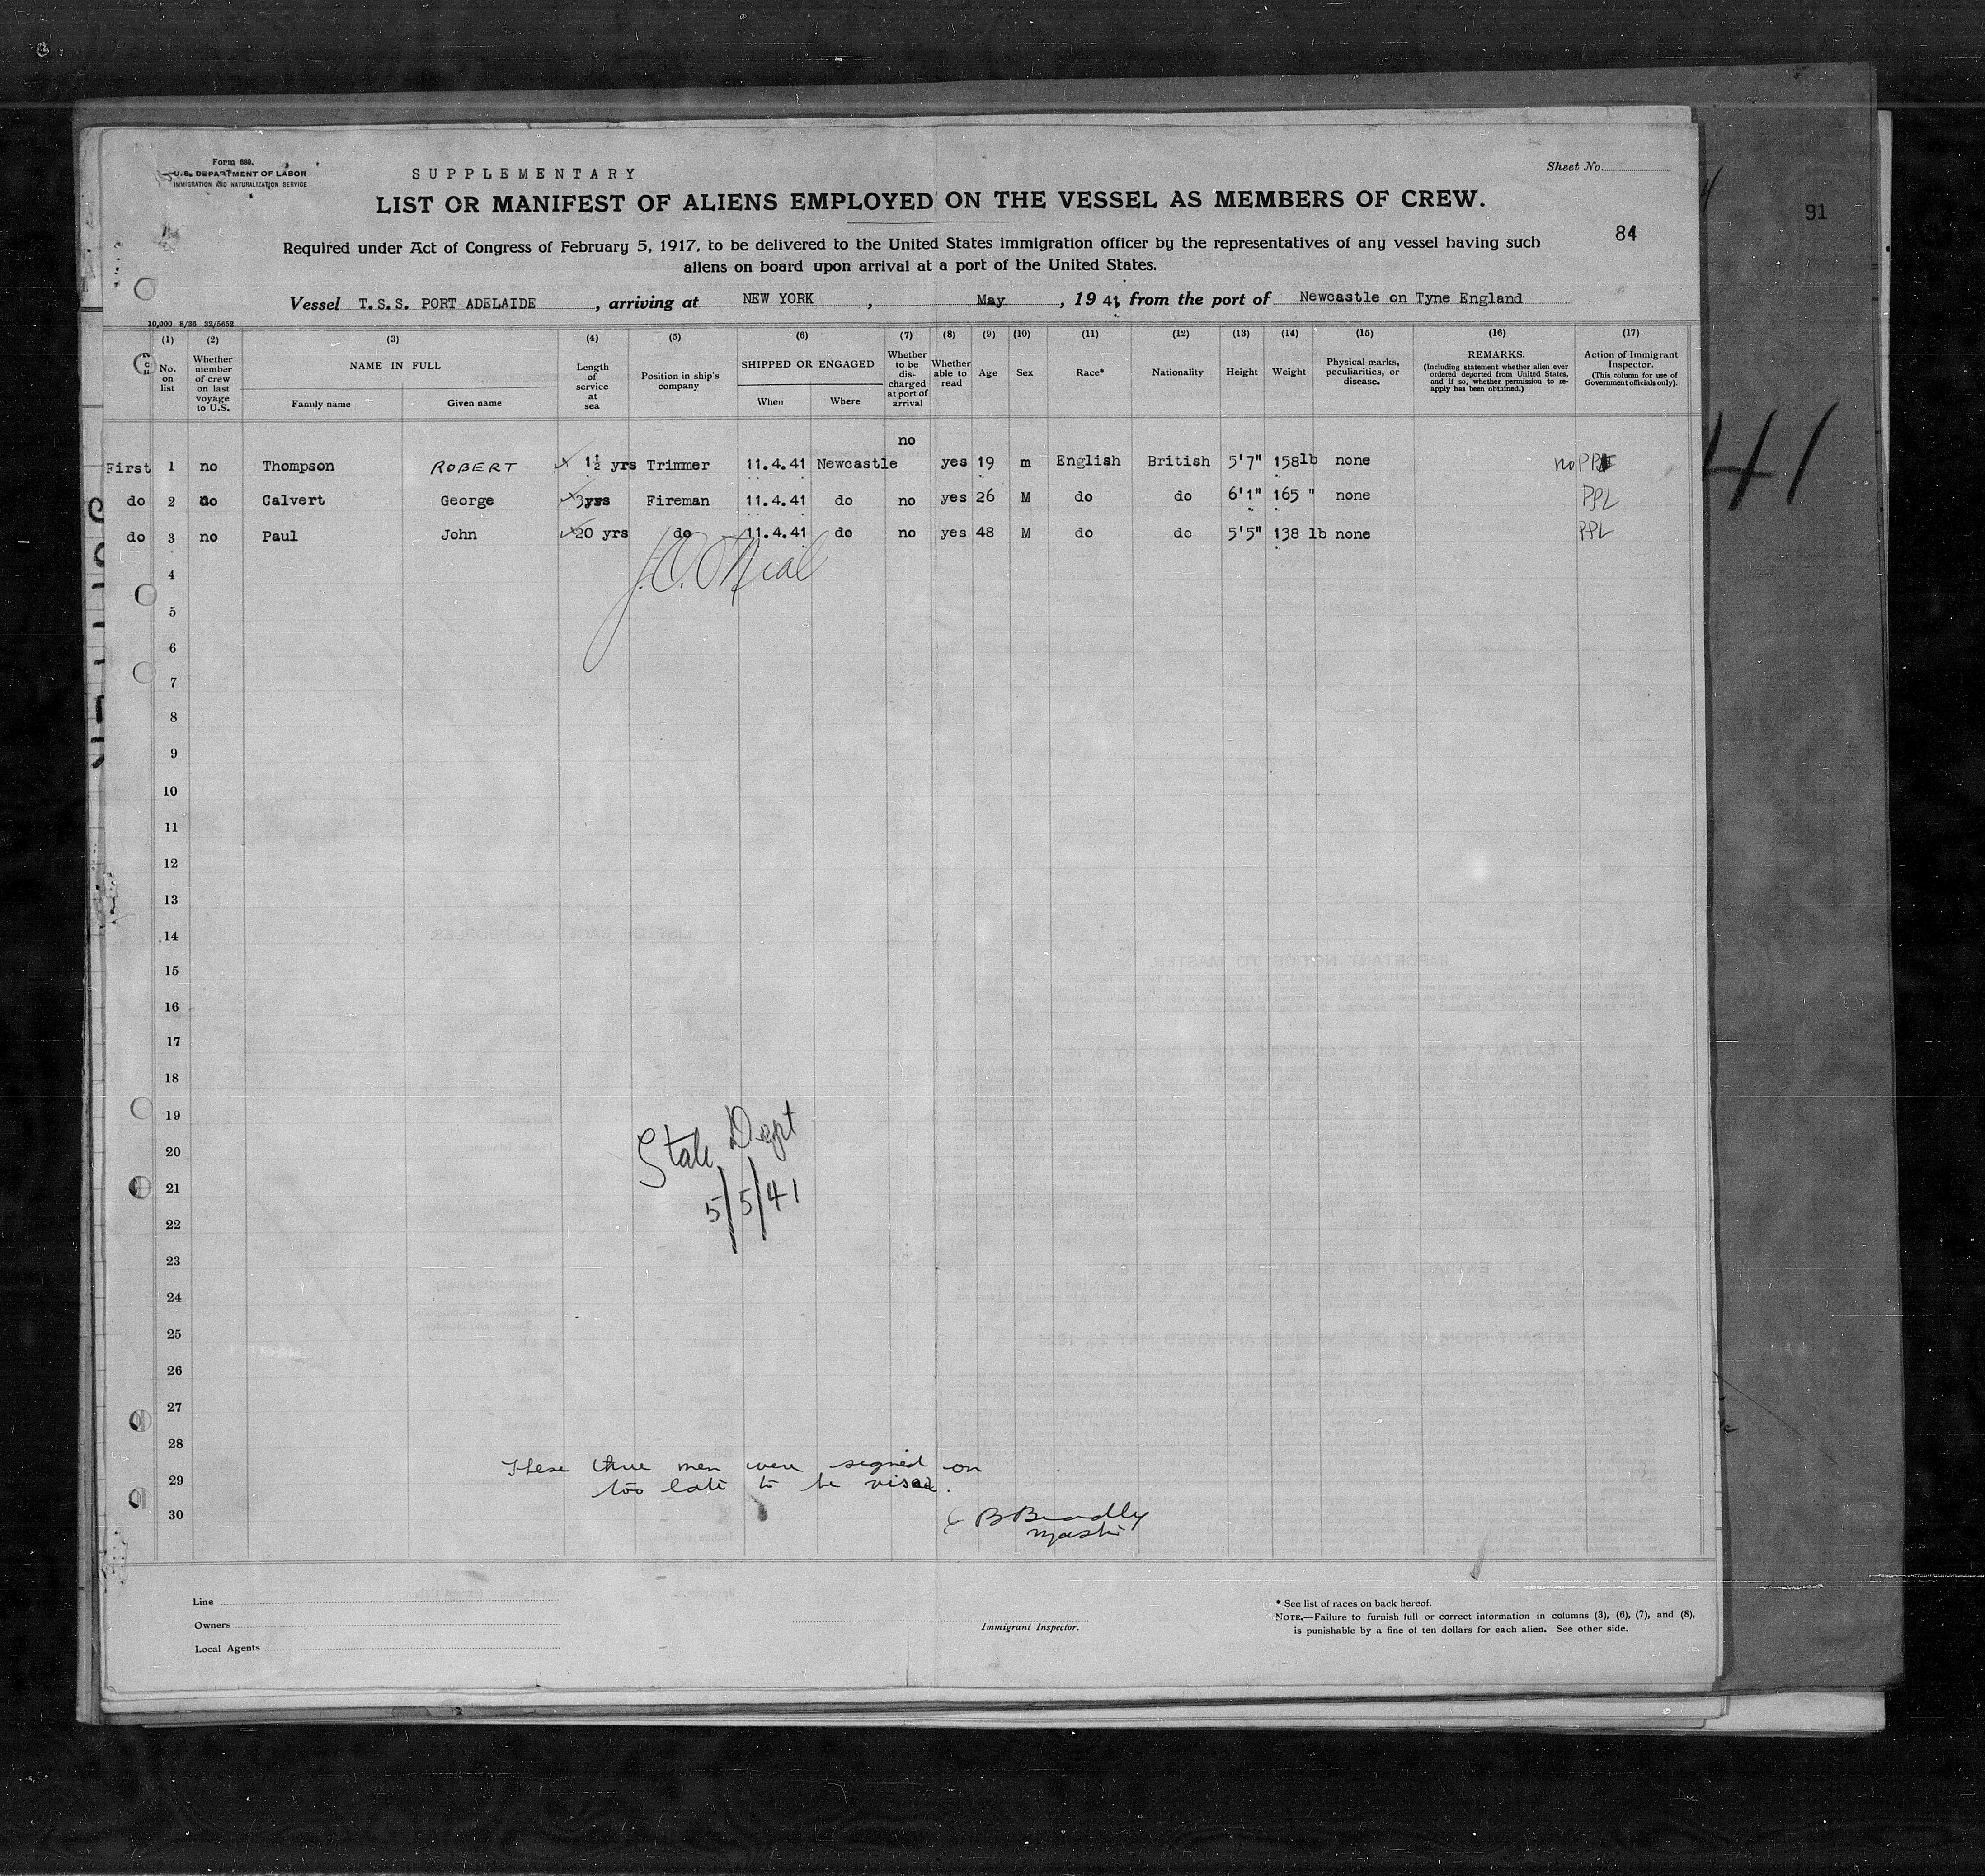 Form 680.
U.S. DEPARTMENT OF LABOR
IMMIGRATION AND NATURALIZATION SERVICE
SUPPLEMENTARY
Sheet No.
LIST OR MANIFEST OF ALIENS EMPLOYED ON THE VESSEL AS MEMBERS OF CREW.
84
91
Required under Act of Congress of February 5, 1917, to be delivered to the United States immigration officer by the representatives of any vessel having such
aliens on board upon arrival at a port of the United States.
Vessel T.S.S. PORT ADELAIDE, arriving at NEW YORK, May, 1941 from the port of Newcastle on Tyne England
10,000 8/36 32/5652
(1) (2) (3) (4) (5) (6) (7) (8) (9) (10) (11) (12) (13) (14) (15) (16) (17)
No. on list
Whether member of crew on last voyage to U.S.
NAME IN FULL
Family name
Given name
Length of service at sea
Position in ship's company
SHIPPED OR ENGAGED
When
Where
Whether to be discharged at port of arrival
Whether able to read
Age
Sex
Race*
Nationality
Height
Weight
Physical marks, peculiarities, or disease.
REMARKS.
(Including statement whether alien ever ordered deported from United States, and if so, whether permission to reapply has been obtained.)
Action of Immigrant Inspector.
(This column for use of Government officials only).
First 1 no Thompson ROBERT 1½ yrs Trimmer 11.4.41 Newcastle no yes 19 m English British 5'7" 158lb none no PPL
do 2 no Calvert George 3yrs Fireman 11.4.41 do no yes 26 M do do 6'1" 165 " none PPL
do 3 no Paul John 20 yrs do 11.4.41 do no yes 48 M do do 5'5" 138 lb none PPL
41
J.O. O'Neal
4
5
6
7
8
9
10
11
12
13
14
15
16
17
18
19
20
21
22
23
24
25
26
27
28
29
30
State Dept
5/5/41
These three men were signed on
too late to be visaed.
B Bradly
Master
Line
Owners
Local Agents
Immigrant Inspector.
* See list of races on back hereof.
NOTE.—Failure to furnish full or correct information in columns (3), (6), (7), and (8),
is punishable by a fine of ten dollars for each alien. See other side.